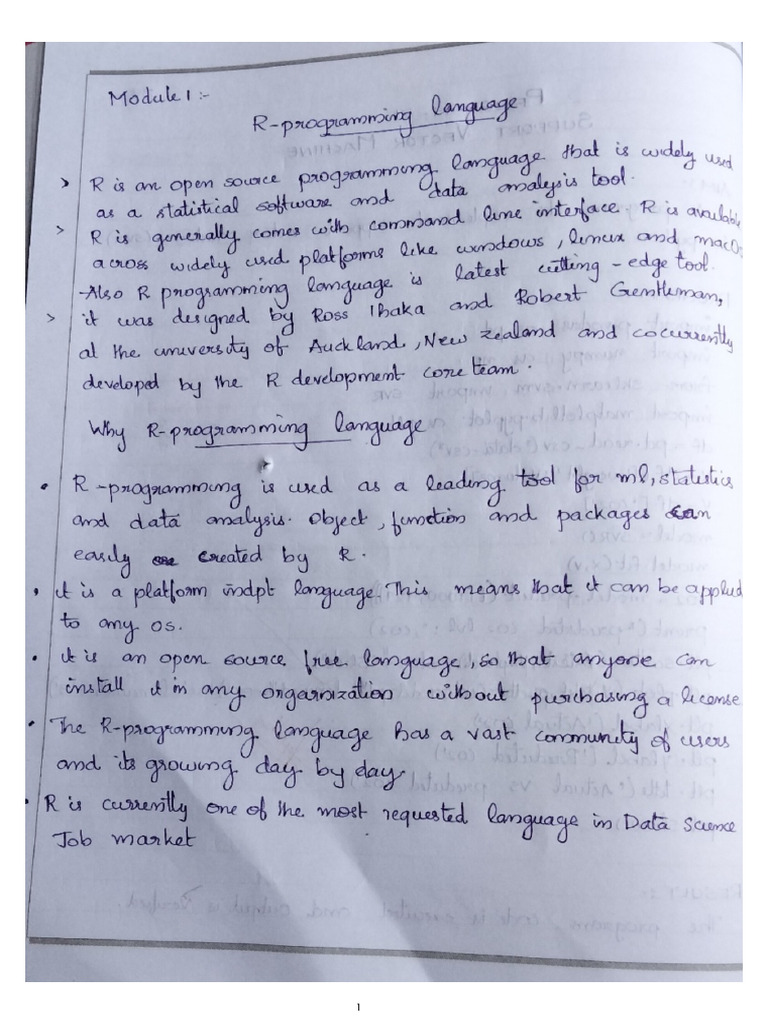 Module 1 :-
R-programming language
> R is an open source programming language that is widely used
as a statistical software and data analysis tool.
> R is generally comes with command line interface R is available
across widely used platforms like windows, linux and macOs
-Also R programming language is latest cutting-edge tool.
> it was designed by Ross Ihaka and Robert Gentleman,
at the university of Auckland, New zealand and cocurrently
developed by the R development core team.
Why R-programming language
• R-programming is used as a leading tool for ml, statistics
and data analysis. Object, function and packages can
easily created by R.
• it is a platform indpt language. This means that it can be applied
to any os.
• it is an open source free language, so that anyone can
install it in any organization without purchasing a license
• The R-programming language has a vast community of users
and its growing day by day.
• R is currently one of the most requested language in Data Science
Job market
1